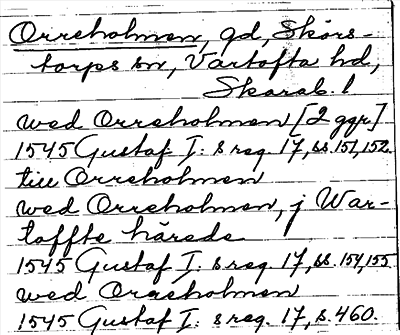 Orreholmen, gd, Skörs-
torps sn, Vartofta hd,
Skarab. l
wed Orreholmen [2 ggr]
1545 Gustaf I: s reg. 17, ss. 151, 152.
till Orreholmen
wed Orreholmen, j War-
toffte härede
1545 Gustaf I: s reg. 17, ss. 154, 155.
wed Orreholmen
1545 Gustaf I: s reg. 17, s. 460.